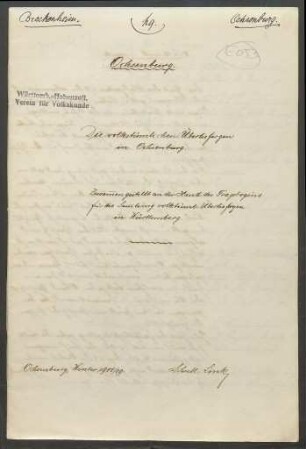 Brackenheim.
19.
Ochsenburg.
Ochsenburg.
Württemb.-Hohenzoll.
Verein für Volkskunde
Die volkstümlichen Überlieferungen
in Ochsenburg
Zusammengestellt an der Hand des Fragebogens
für die Sammlung volkstüml. Überlieferungen
in Württemberg
Ochsenburg